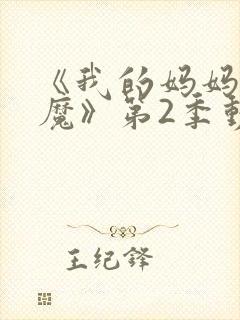 《我的妈妈
魔》第2季
王纪锋